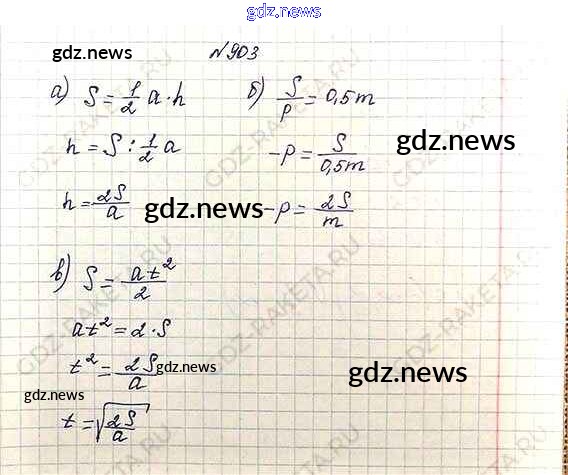 gdz.news
gdz.news
№903
а) S = 1/2 a · h
h = S : 1/2 a
h = 2S/a
б) S/p = 0,5m
-p = S/0,5m
-p = 2S/m
gdz.news
gdz.news
в) S = at²/2
at² = 2 · S
t² = 2S/a
t = √(2S/a)
gdz.news
gdz.news
gdz.news
GDZ-RAKETA.RU
GDZ-RAKETA.RU
GDZ-RAKETA.RU
GDZ-RAKETA.RU